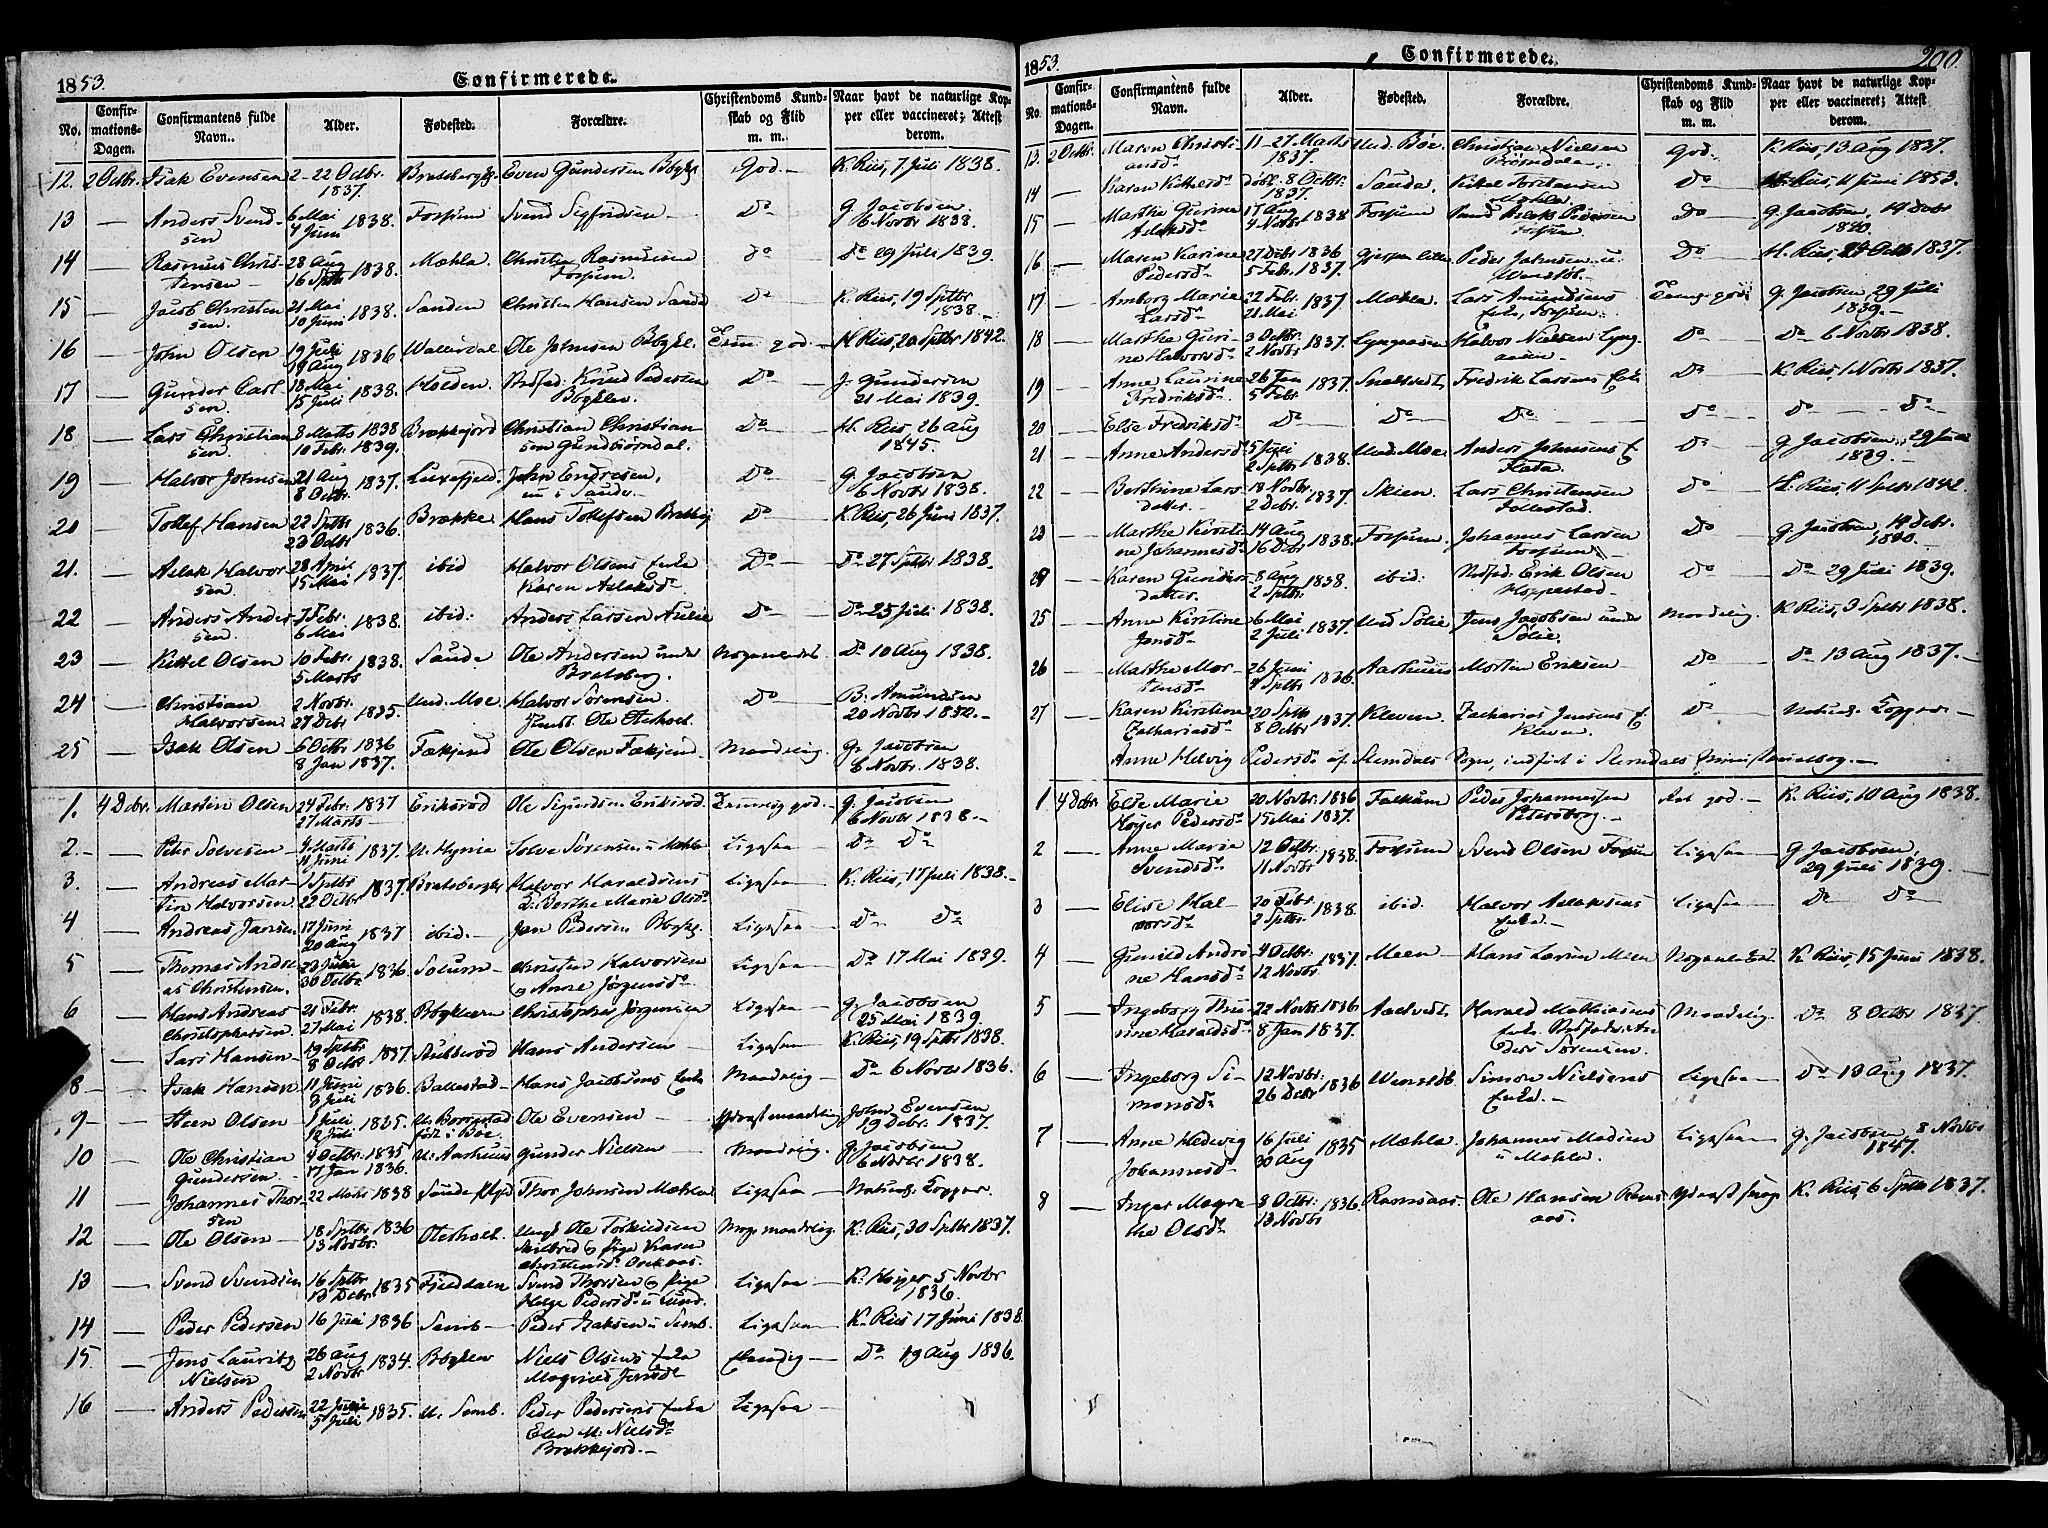 1853.
Confirmerede.
No.
Confirmations-Dagen.
Confirmantens fulde Navn.
Alder.
Fødested.
Forældre.
Christendoms Kundskab og Flid m. m.
Naar havt de naturlige Kopper eller vaccineret; Attest derom.
12. 2 Octbr. Isak Evensen 2-22 Octbr. 1837. Even Gundersen God. K. Riis, 7 Juli 1838.
13 — Anders Svendsen 6 Mai 4 Juni 1838. Fossum Svend Sigfridsen Do G. Jacobsen 6 Novbr. 1838.
14 — Rasmus Christensen 28 Aug 16 Sptbr 1838. Mæhla. Christen Rasmussen Fossum. Do Do 29 Juli 1839.
15 — Jacob Christensen 21 Mai 10 Juni 1838. Sanden Christen Hansen Do K. Riis, 19 Sptbr 1838.
16 — John Olsen 19 Juli 19 Aug 1836 Ole Johnsen Temm. god. K. Riis, 20 Sptbr 1842.
17 — Gunder Carlsen 18 Mai 15 Juli 1838. Holden. Knud Pedersen Do J. Gundersen 21 Mai 1839.
18 — Lars Christiansen 8 Marts 1838 10 Febr. 1839. Brækkejord Christian Christiansen Do K. Riis 26 Aug 1845.
19 — Halvor Johnsen 21 Aug 8 Octbr. 1837. Luxefjeld. John Endresen, Do G. Jacobsen 6 Novbr 1838.
20 — Tollef Hansen 22 Sptbr 23 Octbr 1836. Brække. Hans Tollefsen Do K. Riis, 26 Juni 1837.
21. — Aslak Halvorsen 28 April 15 Mai 1837. ibid Halvor Olsens Enke Karen Aslaksd. Do Do 27 Sptbr 1838.
22 — Anders Andersen 7 Febr. 6 Mai 1838. ibid. Anders Larsen Do Do 25 Juli 1838.
23 — Kittel Olsen 10 Febr. 5 Marts 1838. Saude Ole Andersen under Bratsberg. Do 10 Aug 1838.
24 — Christian Halvorsen 2 Novbr. 27 Debr 1835. Und. Moe. Halvor Sørensen Do B. Amundsen 20 Novbr 1852.
25 — Isak Olsen 6 Octbr 1836 8 Jan 1837. Ole Olsen Maadelig. G. Jacobsen 6 Novbr. 1838.
1. 4 Debr. Martin Olsen 24 Febr. 1837 27 Marts Eriksrød Ole Sigurdsen Eriksrød. Temmelig god. G. Jacobsen 6 Novbr 1838.
2. — Peder Solvesen 9 Marts 11 Juni 1837. Solve Sørensen u. Mæhla Ligesaa Do Do
3. — Andreas Martin Halvorsen 1 Sptbr 22 Octbr 1837. Halvor Haraldsens D. Berthe Marie Olsd. Ligesaa K. Riis, 17 Juli 1838.
4 — Andreas Jansen 17 Juni 20 Aug 1837 ibid. Jan Pedersen Ligesaa Do Do
5 — Thomas Andreas Christensen. 30 Octbr 1836. Solum Christen Halvorsen Anne Jørgensd. Ligesaa Do 17 Mai 1839.
6 — Hans Andreas Christophersen 21 Febr. 27 Mai 1838. Christopher Jørgensen Ligesaa G. Jacobsen 25 Mai 1839
Lars Hansen 19 Sptbr 8 Octbr 1837. Hans Andersen Ligesaa K. Riis, 19 Sptbr 1838.
8 — Isak Hansen 11 Juni 3 Juli 1836. Ballestad Hans Jacobsens Enke Maadelig Do 6 Novbr 1836.
9 — Steen Olsen 1 Juli 12 Juli 1835. født i Bøe. Ole Evensen Yderst maadelig John Evensen 19 Debr. 1837.
10 — Ole Christian Gundersen 4 Octbr. 1835 17 Jan 1836. U. Aarhuus Gunder Nielsen Maadelig. G. Jacobsen 6 Novbr 1838.
11 — Johannes Thorsen 22 Marts 1838 Thor Johnsen Mæhla Ligesaa Naturl. Kopper.
12 — Ole Olsen 18 Sptbr 1836 13 Novbr. Oterholt. Ungk. Ole Pige Karen Christensd. Maadelig. K. Riis, 30 Sptbr 1837.
13 — Svend Svendsen 16 Sptbr 13 Debr. 1835 Fjelddalen Svend Thorsen Pige Helge Pedersd. u. Lund. Ligesaa K. Høyer 5 Novbr 1836.
14 — Peder Pedersen 16 Juni 1836 Semb Peder Isaksen u. Semb. Ligesaa K. Riis 17 Juni 1838
15 — Jens Lauritz Nielsen 26 Aug 2 Novbr 1834. Niels Olsens Enke Jensd. Do 19 Aug 1836.
16 — Anders Pedersen 5 Juli 1835. U. Semb. Peder Pedersens Enke Elen M. Nielsd. Brækkejord. Ligesaa
1853.
Confirmerede.
200
No.
Confirmations-Dagen.
Confirmantens fulde Navn.
Alder.
Fødested.
Forældre.
Christendoms Kundskab og Flid m. m.
Naar havt de naturlige Kopper eller vaccineret; Attest derom.
13. 2 Octbr. Maren Christiansd. 11-27 Marts 1837. Und. Bøe. Christian Nielsen God. K. Riis, 13 Aug 1837.
14 — Karen Kittelsd. 8 Octbr. 1837. Saude. Kittel Torstensen Mæhla. Do Riis, 11 Juni 1853.
15 — Marthe Gurine Aslaksd. 17 Aug 4 Novbr 1838 Fossum. Aslak Pedersen Fossum Do G. Jacobsen, 14 Debr 1840.
16 — Maren Karine Pedersd. 27 Debr 1836 5 Febr. 1837. Gjerpen Peder Johnsen u. Do H. Riis, 24 Octb 1837.
17 — Amborg Maria Larsd. 22 Febr. 21 Mai 1837. Mæhla. Lars Amundsens Enke, Fossum. Temm. god G. Jacobsen, 29 Juli 1839.
18 — Marthe Gurine Halvorsd. 3 Octbr. 2 Novbr 1837. Lyngaasen Halvor Nielsen Lyngaasen Do Do 6 Novbr 1838.
19 — Anne Laurine Fredriksd. 26 Jan 5 Febr. 1837. Fredrik Larsens Enke Do K. Riis, 1 Novbr 1837.
20 — Else Fredriksd. Do Do Do Do Do Do
21 — Anne Andersd. 5 Juli 2 Sptbr 1838. Und. Moe. Anders Johnsens E. Flata. Do G. Jacobsen, 29 Juli 1839.
22 — Berthine Larsdatter. 18 Novbr. 2 Debr. 1837. Skien. Lars Christensen Follestad. Do K. Riis, 11 Sptbr 1842.
23 — Marthe Kirstine Johannesd. 14 Aug 16 Debr 1838. Fossum. Johannes Larsen Fossum Do G. Jacobsen, 14 Debr. 1840.
24 — Karen Gundersdatter. 8 Aug 2 Sptbr. 1838. ibid: Erik Olsen Hoppestad Do Do 29 Juli 1839.
25 — Anne Kirstine Jensd. 6 Mai 2 Juli 1837. Und Sølie Jens Jacobsen under Sølie. Maadelig. K. Riis, 3 Sptbr 1838.
26 — Marthe Mortensd. 26 Juni 4 Sptbr 1836. Aarhuus Morten Eriksen Do Do 13 Aug 1837.
27 — Karen Kirstine Zachariasd. 20 Sptbr 8 Octbr 1837. Kleven. Zacharias Jensens E. Kleven. Do Naturl. Kopper
Anne Helvig Pedersd. af Slemdals Sogn, indført i Slemdals Ministerialbog.
1 4 Debr. Else Marie Høyer Pedersd. 20 Novbr. 1836 15 Mai 1837. Falkum Peder Johannessen Petersborg. god. K. Riis, 10 Aug 1838.
2 — Anne Maria Svendsd. 12 Octbr. 11 Novbr 1838. Fossum Svend Olsen Fossum Ligesaa G. Jacobsen, 29 Juli 1839.
3 — Elise Halvorsd. 20 Febr. 2 Sptbr. 1838. ibid. Halvor Aslaksens Enke. Ligesaa Do Do
4 — Gunild Andrine Hansd. 4 Octbr. 12 Novbr 1837. Meen Hans Larsen Meen K. Riis, 15 Juni 1838.
5 — Ingeborg Thurine Haraldsd. 22 Novbr. 1836 8 Jan 1837. Harald Mathiasens Enke Sørensen. Maadelig. Do 8 Octbr 1837
6 — Ingeborg Simonsd. 12 Novbr. 26 Debr 1836 Simon Nielsens Enke. Ligesaa Do 13 Aug 1837.
7 — Anne Hedevig Johannesd. 16 Juli 30 Aug 1835 Mæhla. Johannes Madsen u. Mæhla. Ligesaa G. Jacobsen, 8 Novbr 1847.
8 — Inger Magrethe Olsd. 8 Octbr. 13 Novbr 1836. Ramsaas. Ole Hansen Ramsaas. K. Riis, 6 Sptbr 1837.